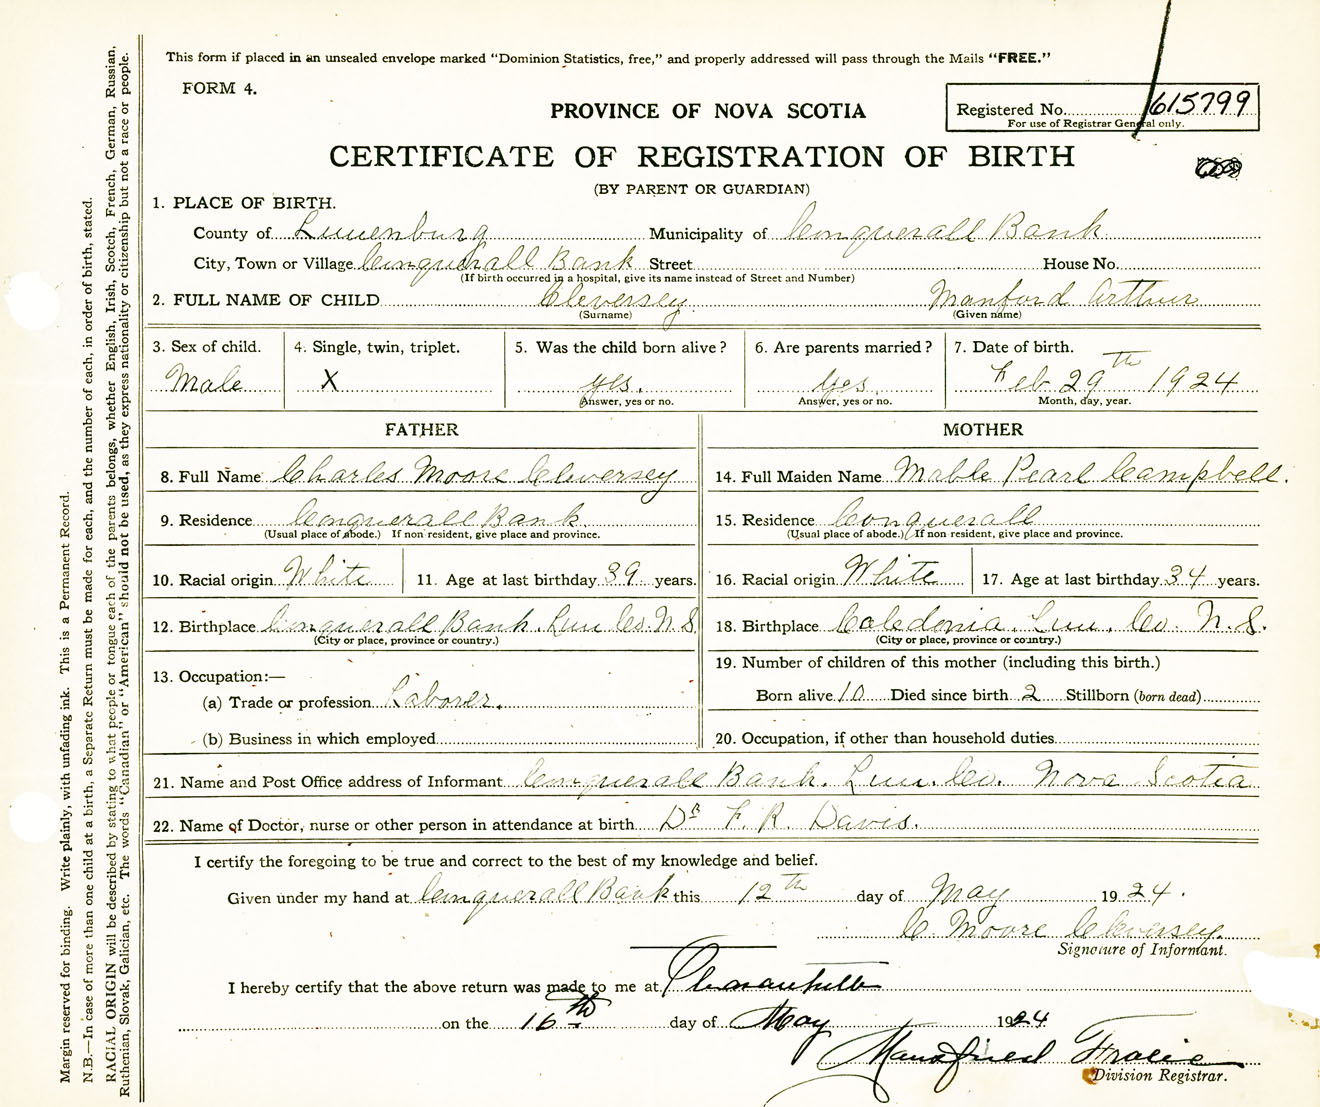 This form if placed in an unsealed envelope marked "Dominion Statistics, free," and properly addressed will pass through the Mails "FREE."
FORM 4.
PROVINCE OF NOVA SCOTIA
Registered No. 615799
For use of Registrar General only.
CERTIFICATE OF REGISTRATION OF BIRTH
(BY PARENT OR GUARDIAN)
1. PLACE OF BIRTH.
County of Lunenburg Municipality of Conquerall Bank
City, Town or Village Conquerall Bank Street House No.
(If birth occurred in a hospital, give its name instead of Street and Number)
2. FULL NAME OF CHILD Cleversey Manford Arthur
(Surname) (Given name)
3. Sex of child. 4. Single, twin, triplet. 5. Was the child born alive? 6. Are parents married? 7. Date of birth.
Male X yes. yes Feb 29th 1924
Answer, yes or no. Answer, yes or no. Month, day, year.
FATHER MOTHER
8. Full Name Charles Moore Cleversey 14. Full Maiden Name Mable Pearl Campbell.
9. Residence Conquerall Bank 15. Residence Conquerall
(Usual place of abode.) If non resident, give place and province. (Usual place of abode.) If non resident, give place and province.
10. Racial origin White 11. Age at last birthday 39 years. 16. Racial origin White 17. Age at last birthday 34 years.
12. Birthplace Conquerall Bank. Lun Co. N.S 18. Birthplace Caledonia, Lun. Co. N.S.
(City or place, province or country.) (City or place, province or country.)
13. Occupation:— 19. Number of children of this mother (including this birth.)
(a) Trade or profession Laborer. Born alive 10 Died since birth 2 Stillborn (born dead)
(b) Business in which employed 20. Occupation, if other than household duties
21. Name and Post Office address of Informant Conquerall Bank. Lun. Co. Nova Scotia
22. Name of Doctor, nurse or other person in attendance at birth Dr F. R. Davis.
I certify the foregoing to be true and correct to the best of my knowledge and belief.
Given under my hand at Conquerall Bank this 12th day of May 1924.
C. Moore Cleversey.
Signature of Informant.
I hereby certify that the above return was made to me at Pleasantville
on the 16th day of May 1924
Division Registrar.
Margin reserved for binding. Write plainly, with unfading ink. This is a Permanent Record.
N.B.—In case of more than one child at a birth, a Separate Return must be made for each, and the number of each, in order of birth, stated.
RACIAL ORIGIN will be described by stating to what people or tongue each of the parents belongs, whether English, Irish, Scotch, French, German, Russian,
Ruthenian, Slovak, Galician, etc. The words "Canadian" or "American" should not be used, as they express nationality or citizenship but not a race or people.